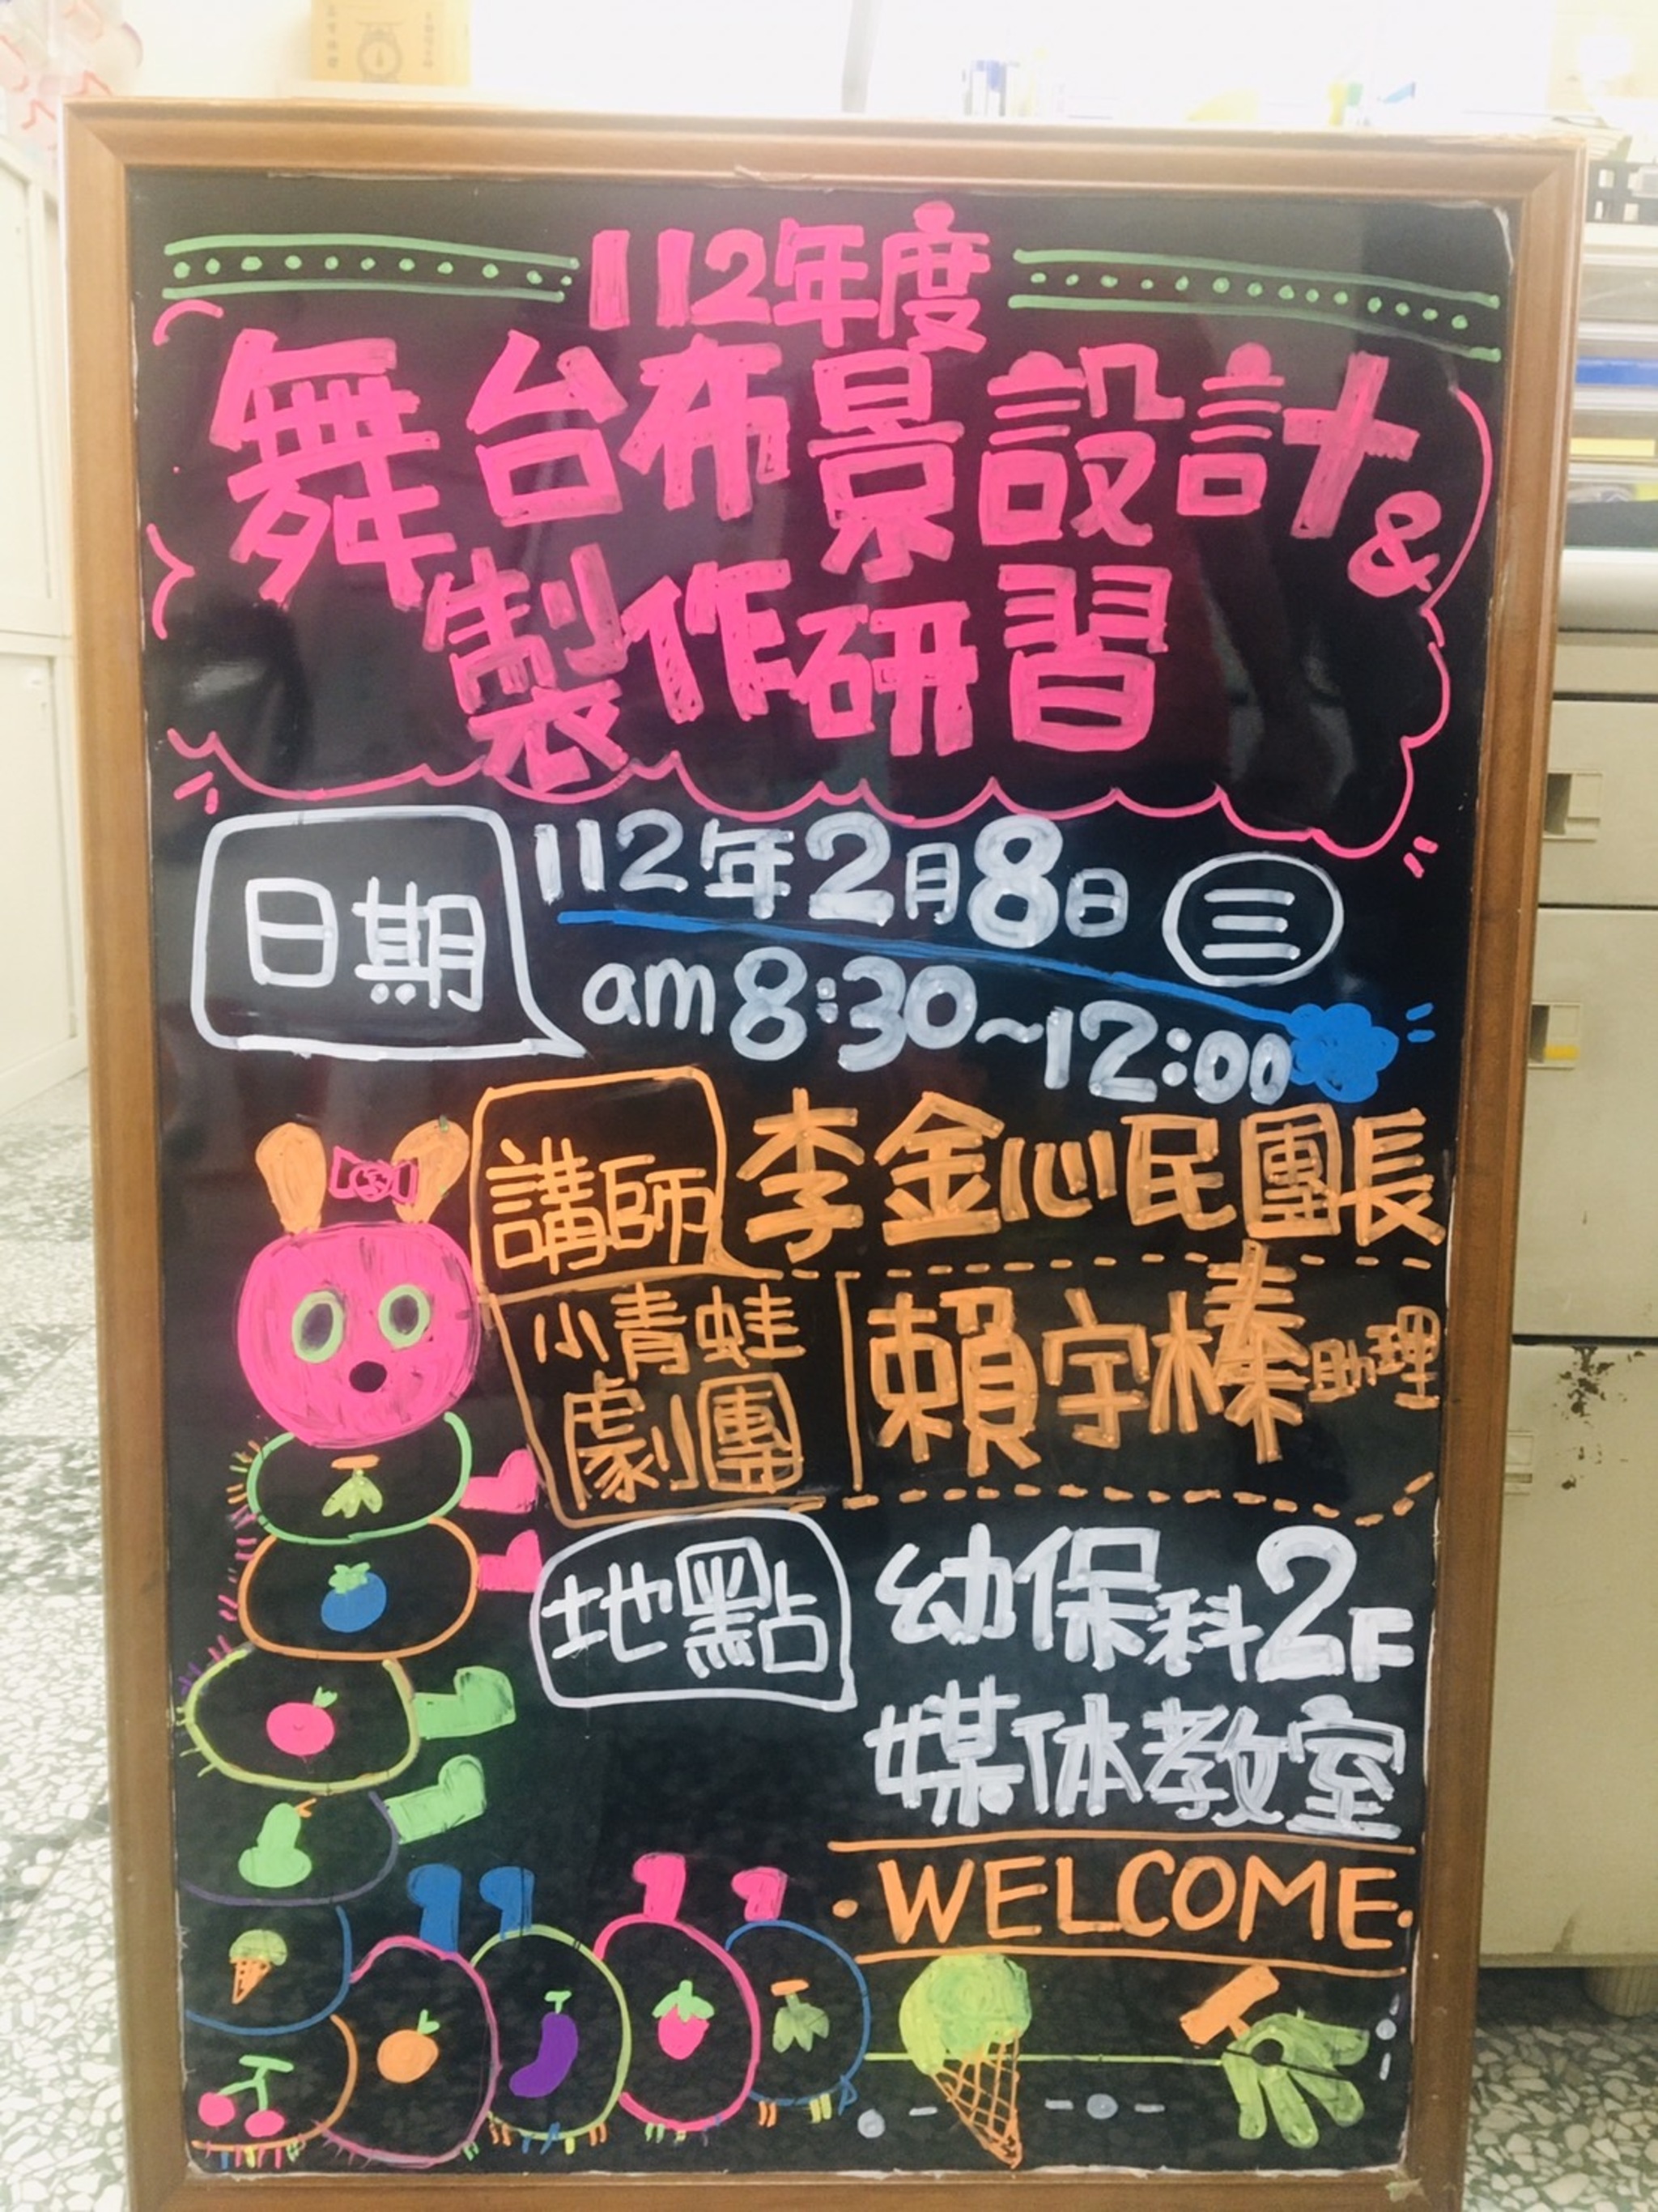 112年度
舞台布景設計&
製作研習
日期
112年2月8日 三
am 8:30~12:00
講師
李金心民團長
小青蛙
劇團
賴宇榛助理
地點
幼保科2F
媒体教室
·WELCOME·